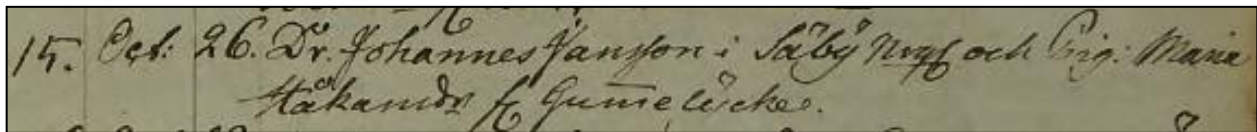 15. Oct: 26. Dr. Johannes Jansson i Säby Norrg och Pig: Maria
Håkansdr fr Gumelycke.